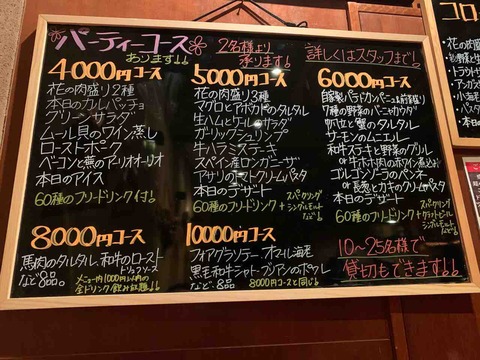 パーティーコース
あります!!
2名様より
承ります!
詳しくはスタッフまで!
4000円コース
花の肉盛り2種
本日のカルパッチョ
グリーンサラダ
ムール貝のワイン蒸し
ローストポーク
ベーコンと蕪のアリオオーリオ
本日のアイス
60種のフリードリンク付!
5000円コース
花の肉盛り3種
マグロとアボカドのタルタル
生ハムとケールのサラダ
ガーリックシュリンプ
牛ハラミステーキ
スペイン産ロンガニーザ
アサリのトマトクリームパスタ
本日のデザート
60種のフリードリンク+
スパークリング
シングルモルト
など!
6000円コース
自家製パテドカンパーニュと前菜盛り
7種の野菜のバーニャカウダ
帆立と蟹のタルタル
サーモンのムニエル
和牛ステーキと野菜のグリル
or 牛ホホ肉の赤ワイン煮込み
ゴルゴンゾーラのペンネ
or 長葱とカキのクリームパスタ
本日のデザート
60種のフリードリンク+
スパークリング
クラフトビール
シングルモルト
など!
8000円コース
馬肉のタルタル、和牛のロースト
トリュフソース
など8品。
メニュー内1000円以内の
全ドリンク飲み放題!!
10000円コース
フォアグラソテー、オマール海老
黒毛和牛シャトーブリアンのポワレ
など、8品
8000円コースと同じ!
10〜25名様で
貸切もできます!!
コロ
・花の肉
・トラウトサ
・アンガス
・小海老
・本日の